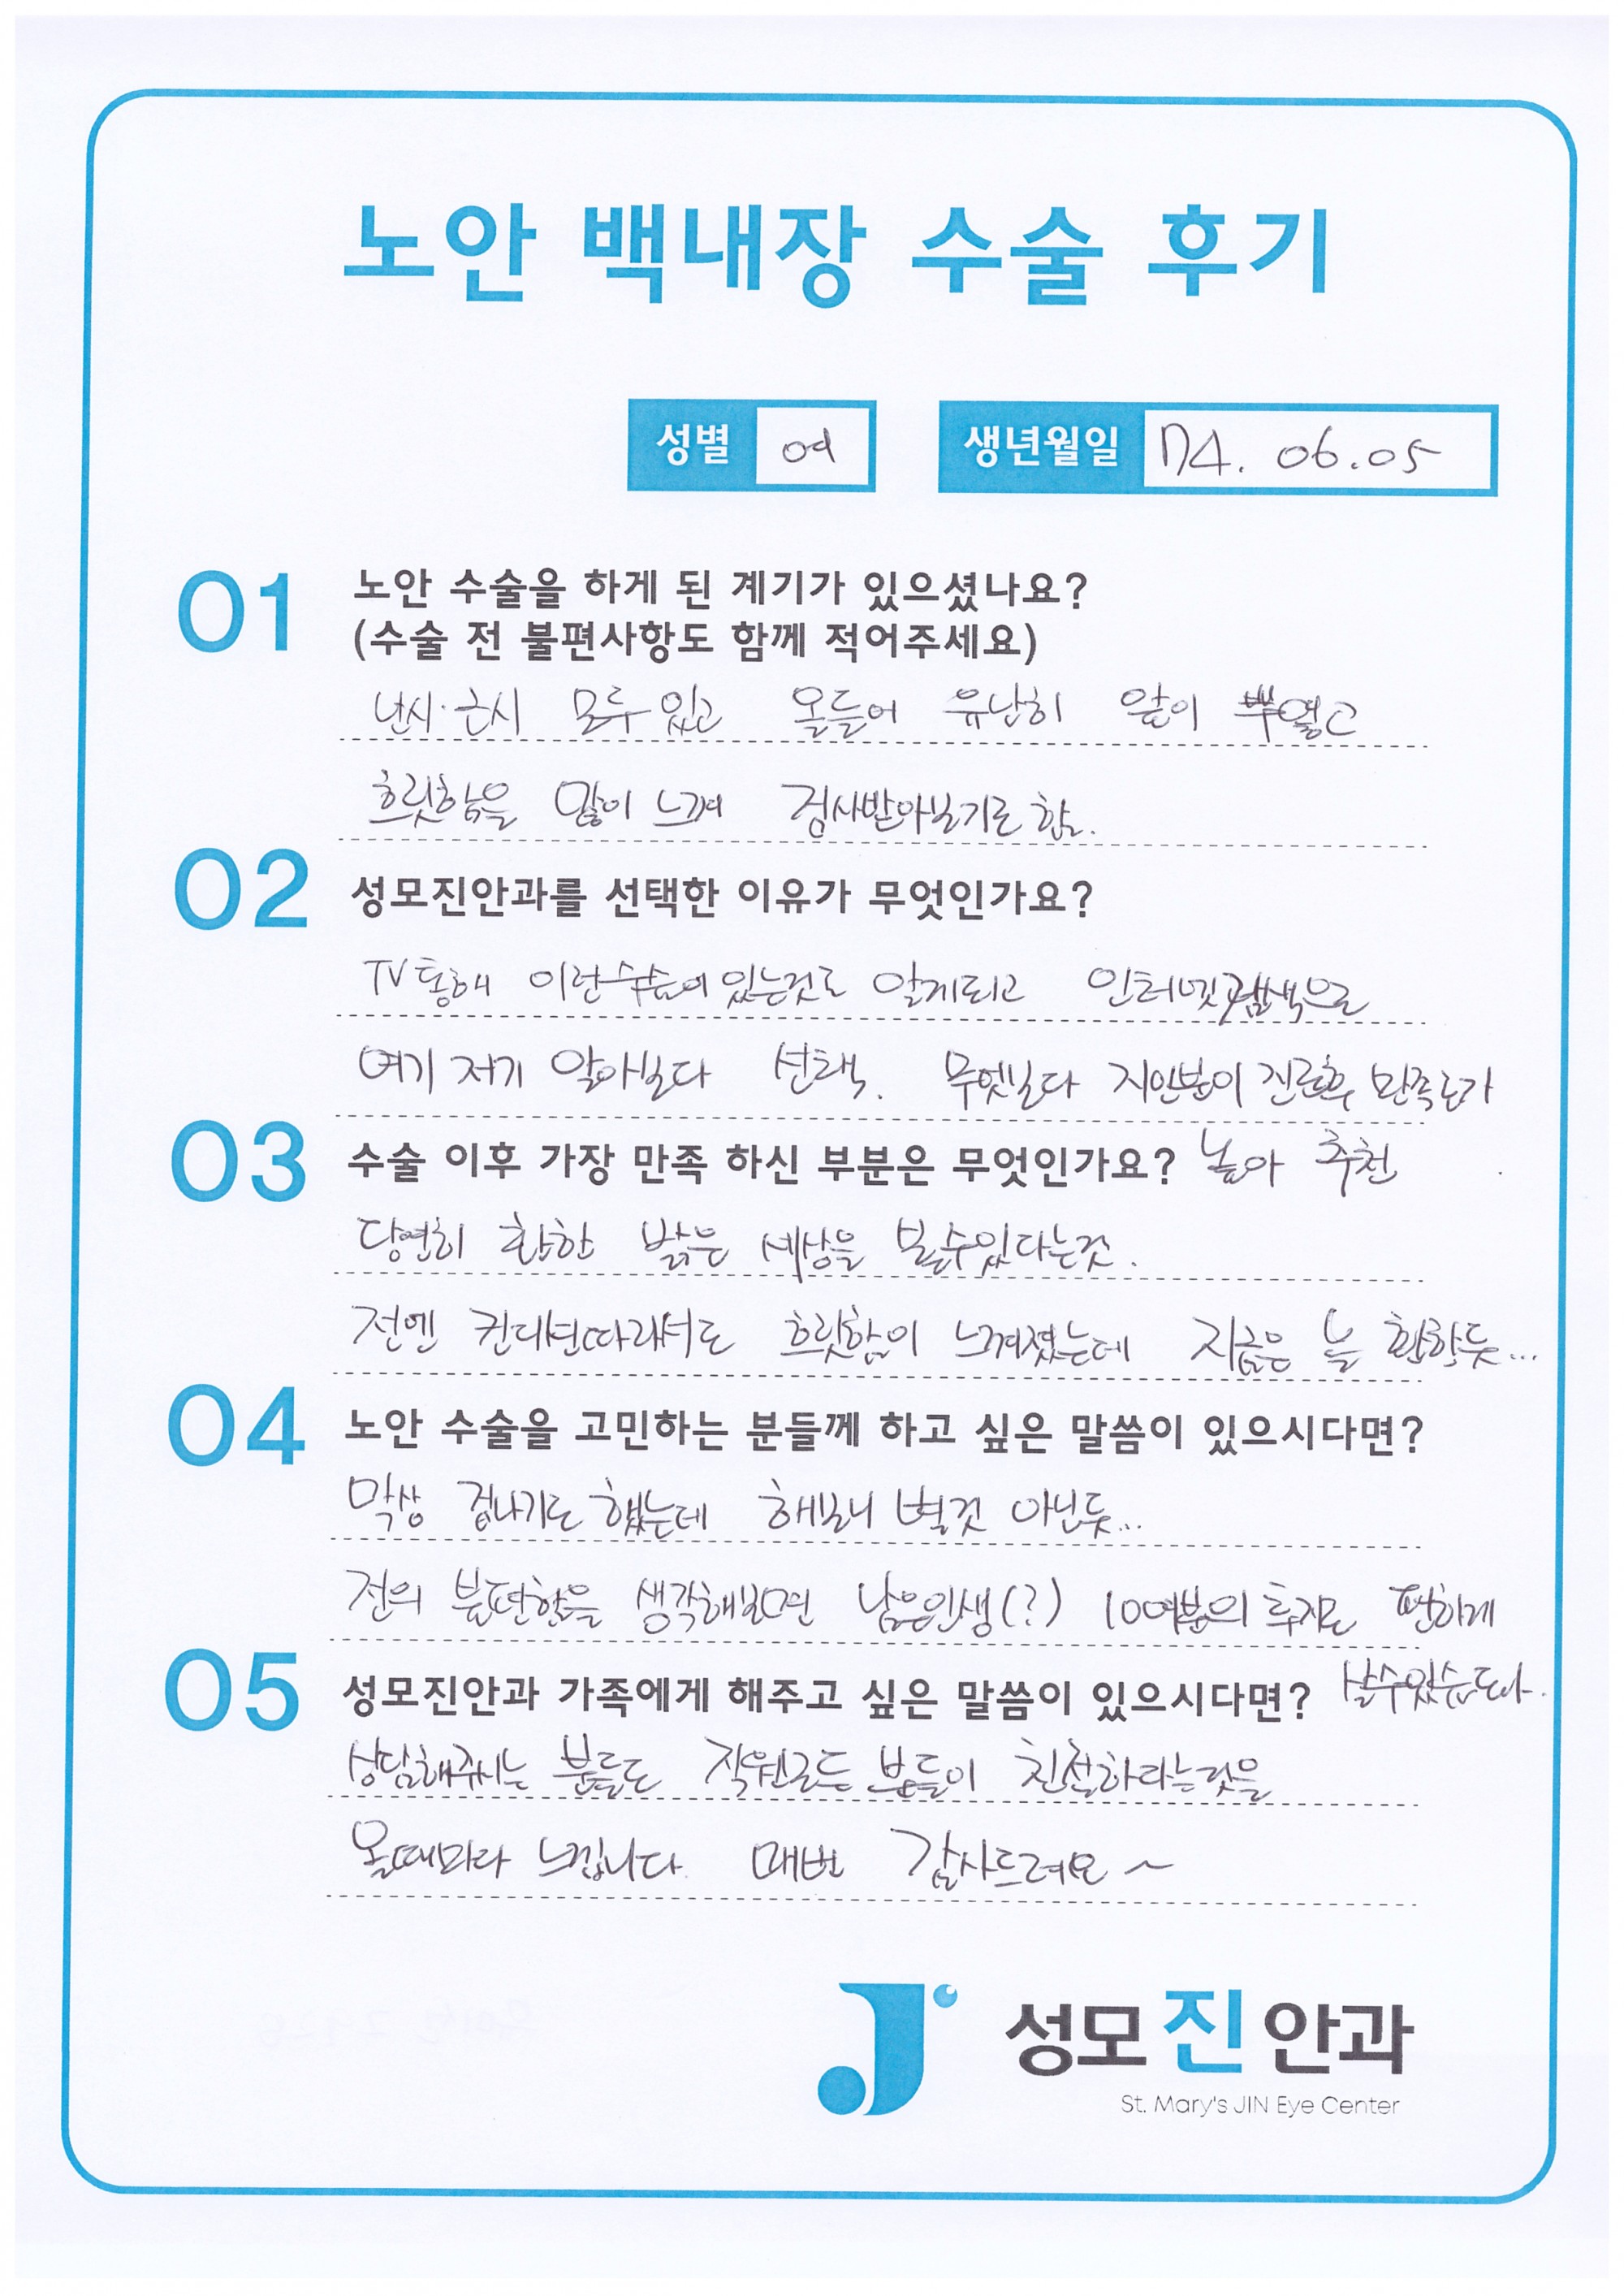 노안 백내장 수술 후기
성별 여 생년월일 74. 06.05
01 노안 수술을 하게 된 계기가 있으셨나요?
(수술 전 불편사항도 함께 적어주세요)
난시·근시 모두 있고 올들어 유난히 앞이 뿌옇고
흐릿함을 많이 느껴 검사받아보기로 함.
02 성모진안과를 선택한 이유가 무엇인가요?
TV통해 이런수술이 있는것도 알게되고 인터넷검색으로
여기 저기 알아보다 선택. 무엇보다 지인분이 진료후 만족도가
03 수술 이후 가장 만족 하신 부분은 무엇인가요? 높아 추천
당연히 환한 밝은 세상을 볼수있다는것.
전엔 컨대션따라서도 흐릿함이 느껴졌는데 지금은 늘 환한듯...
04 노안 수술을 고민하는 분들께 하고 싶은 말씀이 있으시다면?
막상 겁나기도 했는데 해보니 별것 아닌듯...
전의 불편함을 생각해보면 남은인생(?) 10여분의 투자로 편하게
05 성모진안과 가족에게 해주고 싶은 말씀이 있으시다면? 살수있습니다.
상담해주시는 분들도 직원모든 분들이 친절하다는것을
올때마다 느낍니다. 매번 감사드려요~
성모진안과
St. Mary's JIN Eye Center